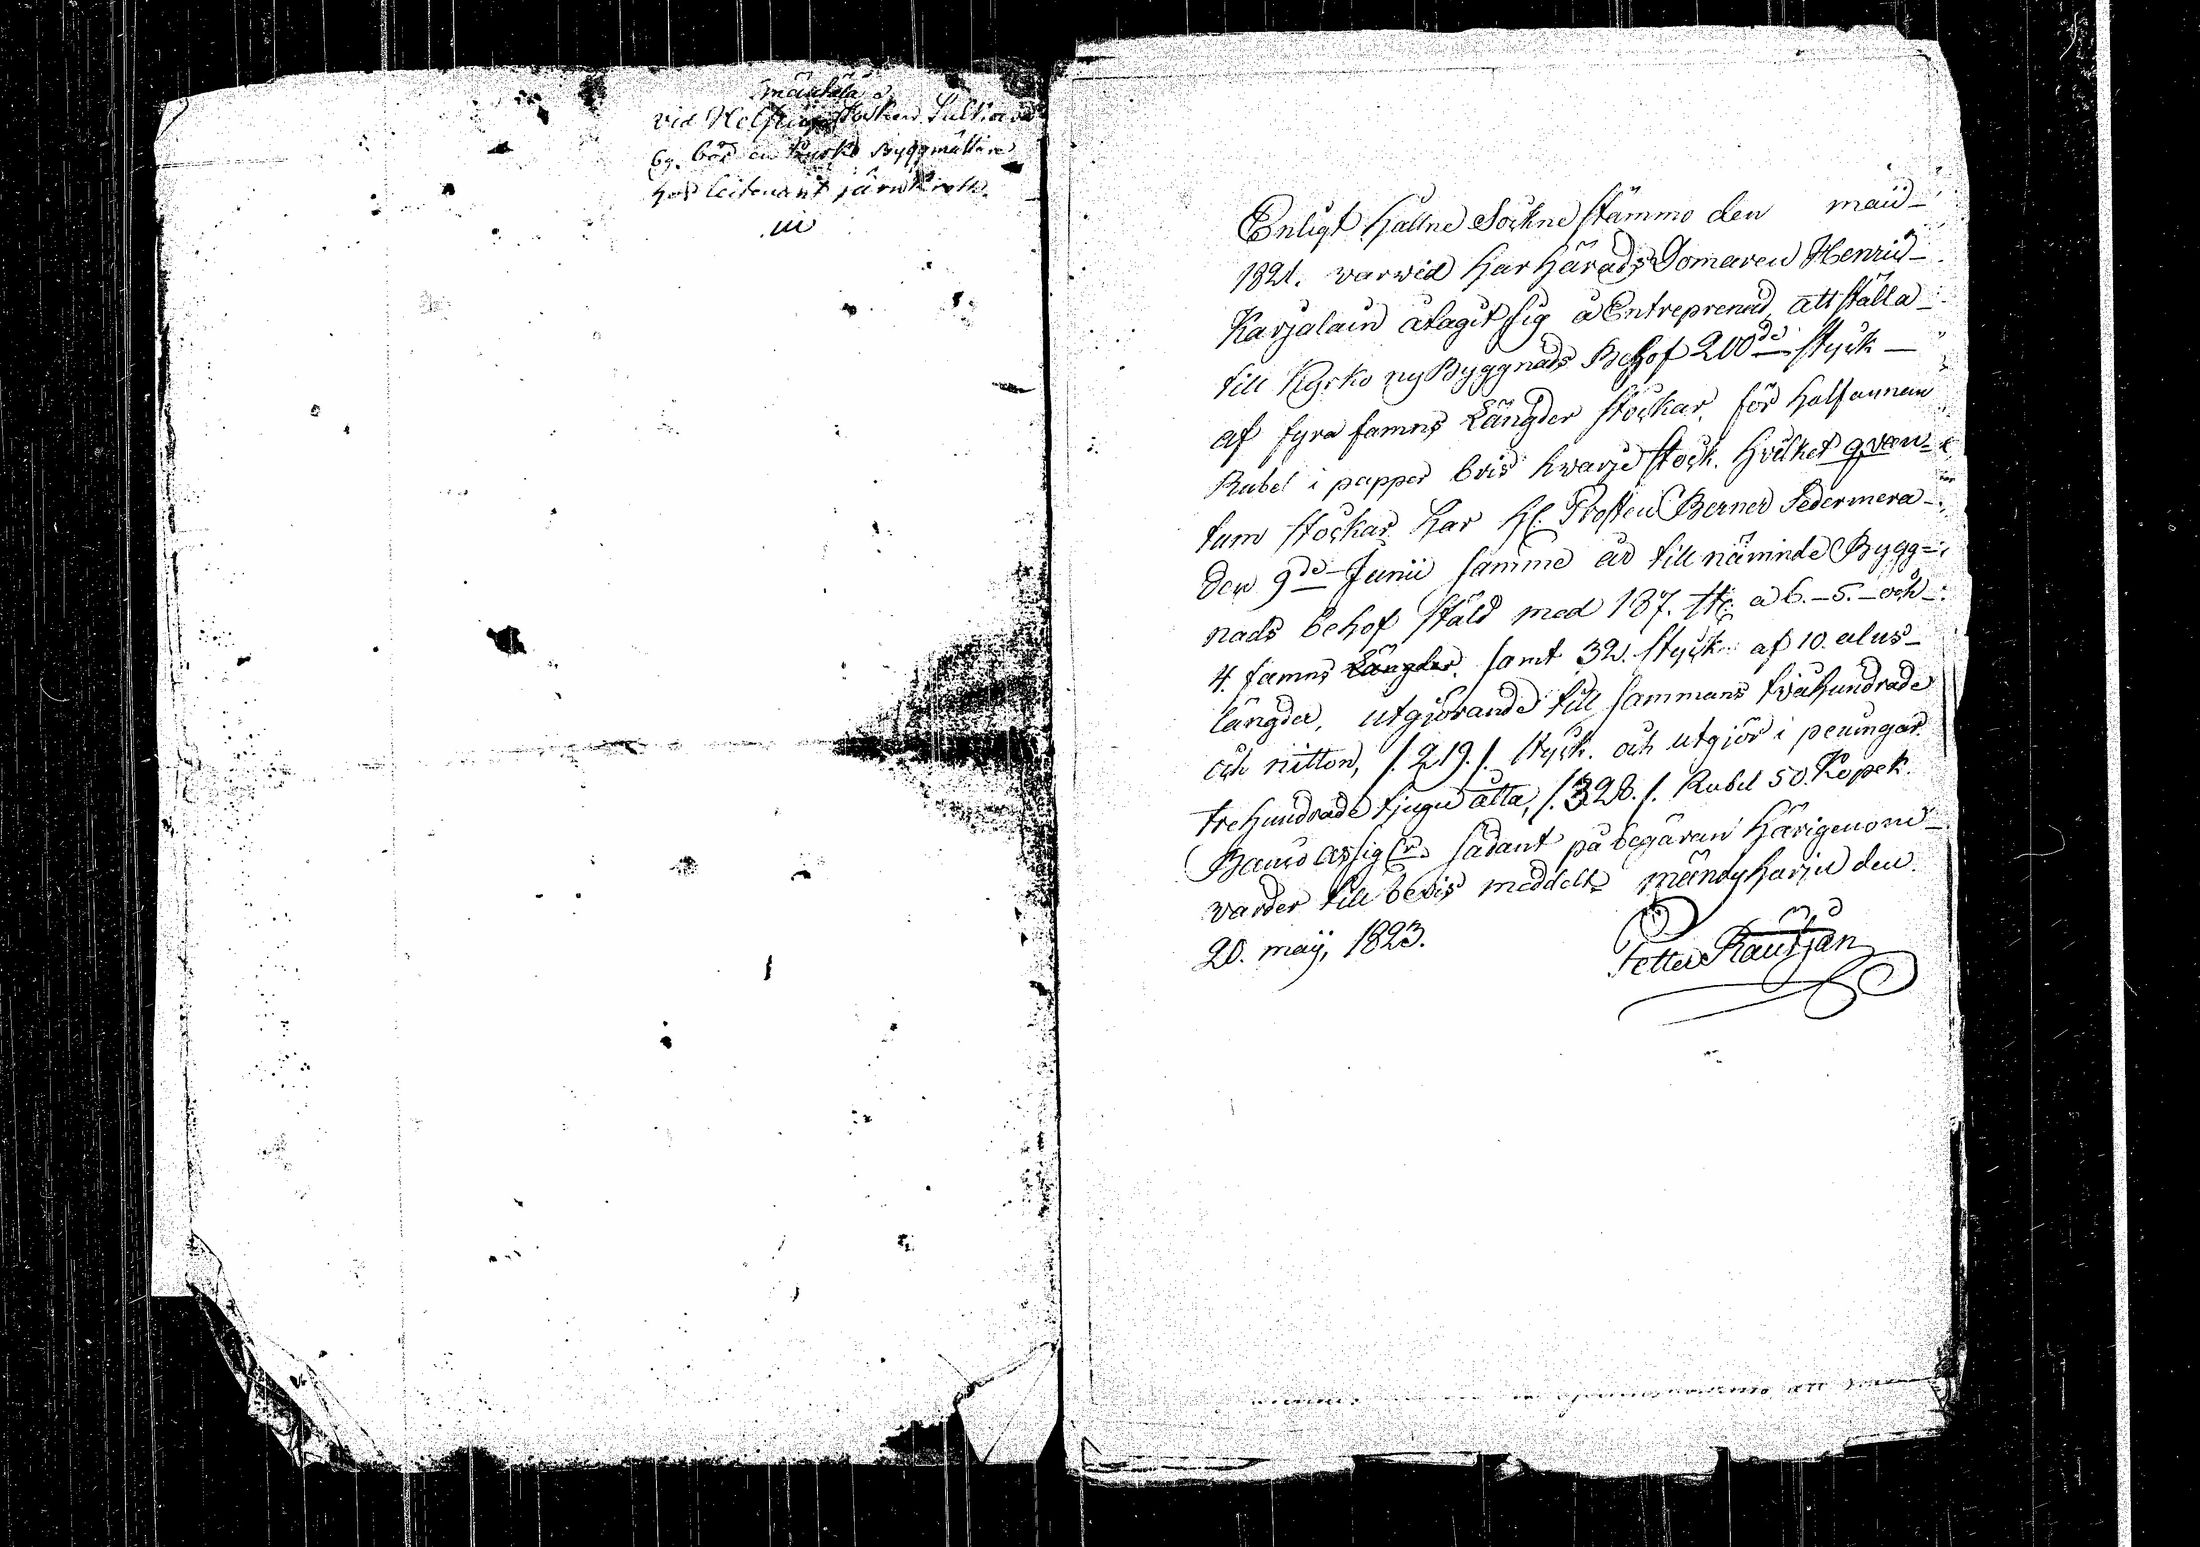 mäntälä
vid Helsinge Socken
by. bor en Kyrko Byggmästare
hos leitenant järnkrok.
Enligt hållne Sockne stämmo den maii
1821. varwid har härads Domaren Henric
Karjalain åtagit sig å Entreprenad att ställa
till Kyrko ny Byggnads Behof 200de styck
af fyra famns Längder stockar, för halfannan
Rubel i papper bris hwarje stock. hvilket qvan-
tum stockar har H. Prosten Berner Sedermera
den 9de Junii samme år till nämnde Bygg-
nads behof stäld med 187. st. a 6. - 5. - och
4. famns Längder. samt 32. styck af 10. alns
längder, utgjörande till sammans tvåhundrade
och nitton, /. 219. /. styck. och utgjör i peningar
trehundrade tjugu åtta, /. 328. /. Rubel 50. Kopek.
Banco assig sådant på begäran härigenom
varder till bevis meddelt mändyharju den
20. maij, 1823.
Petter Rautjan